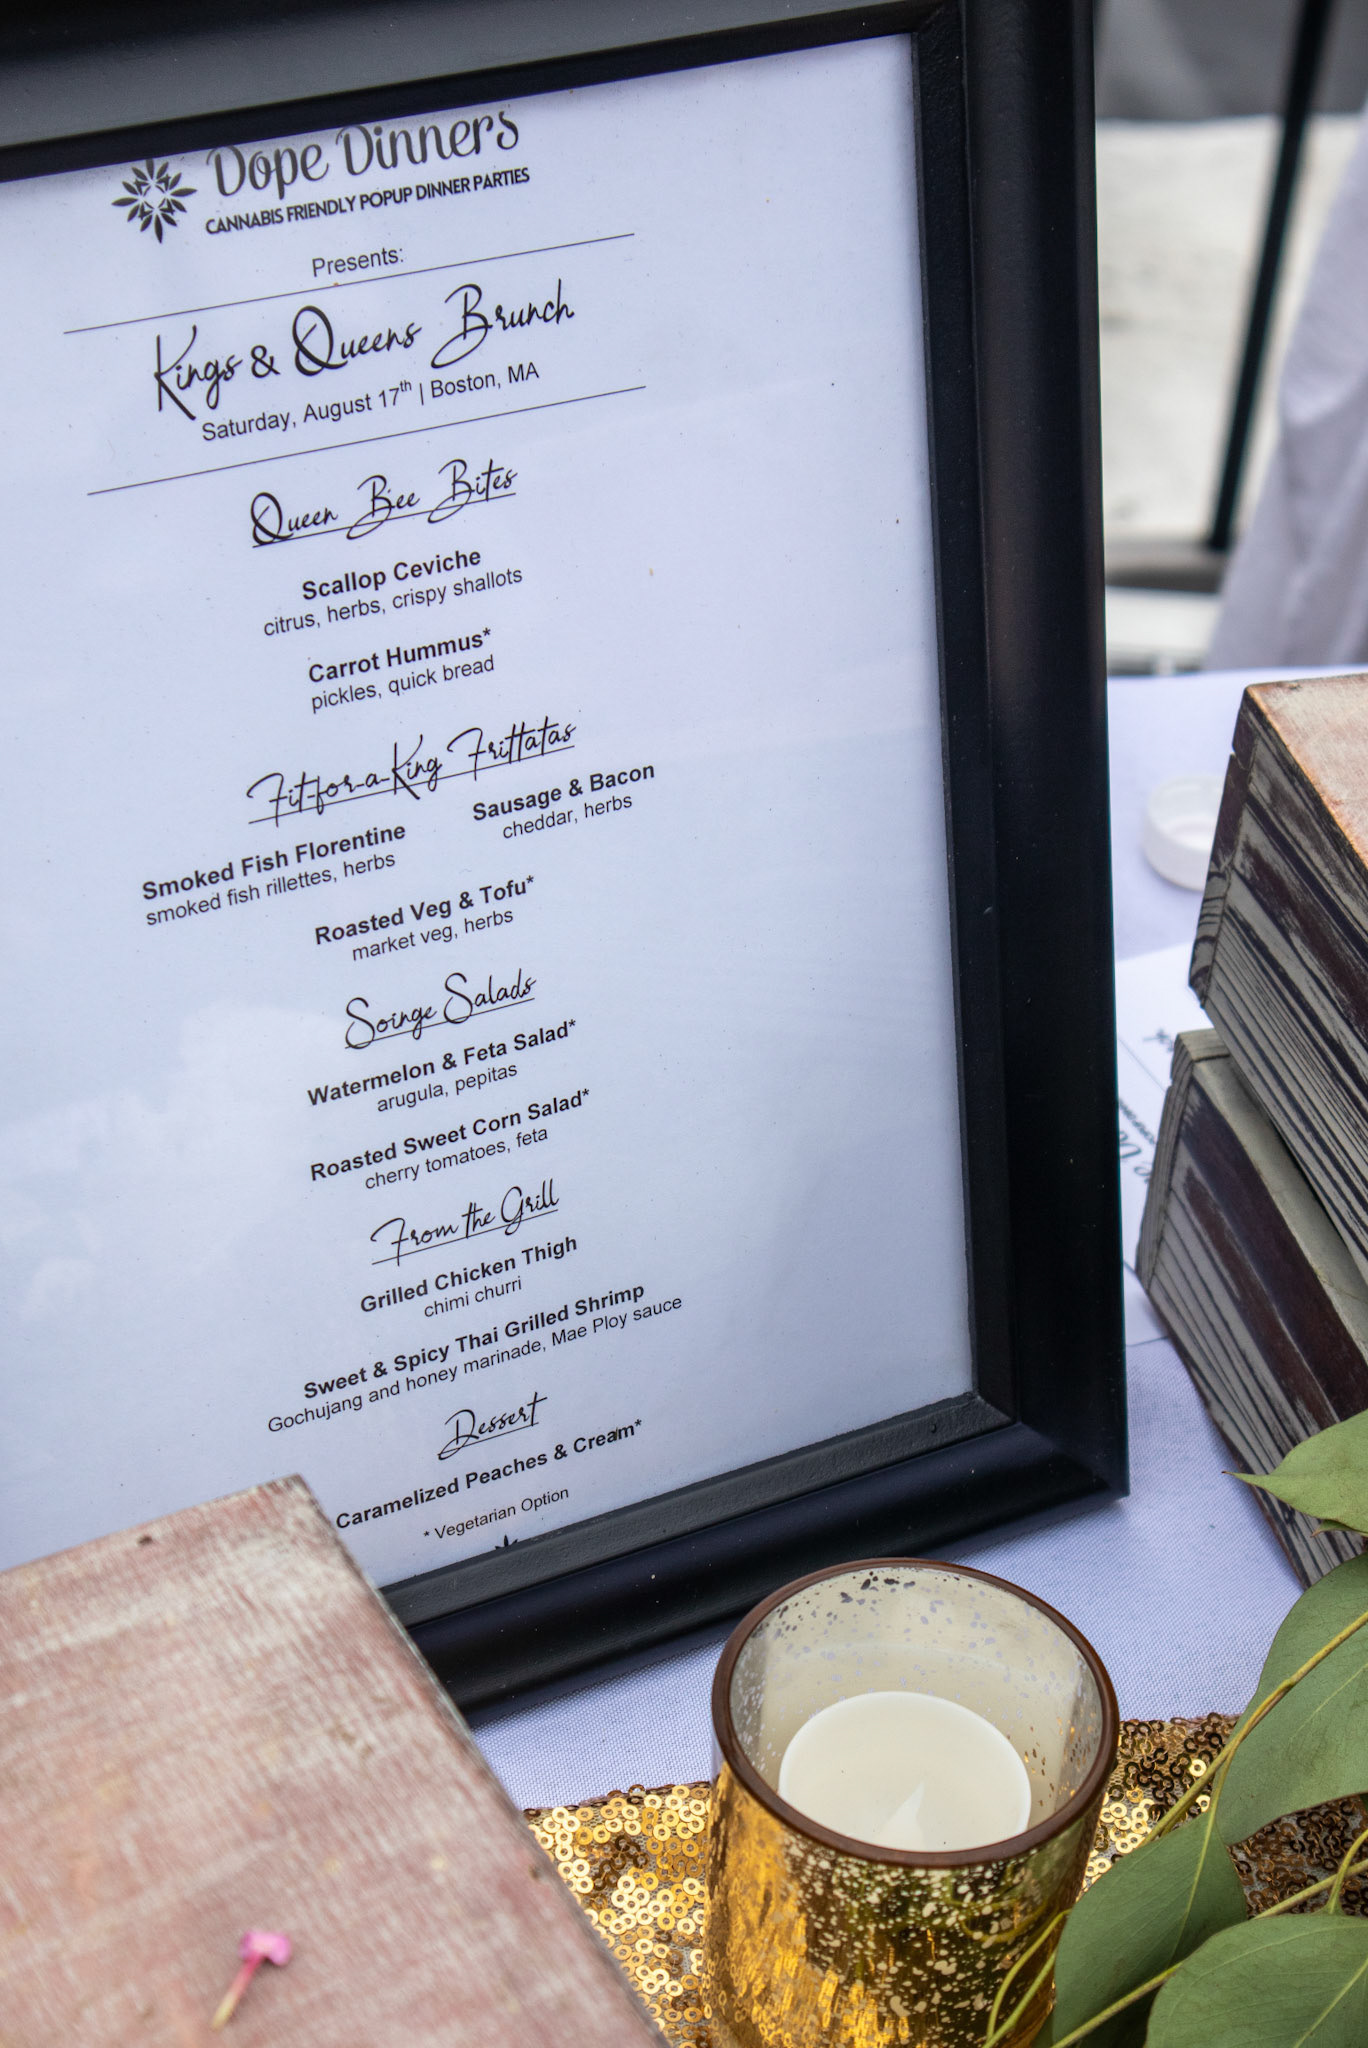 Dope Dinners
CANNABIS FRIENDLY POPUP DINNER PARTIES
Presents:
Kings & Queens Brunch
Saturday, August 17th | Boston, MA
Queen Bee Bites
Scallop Ceviche
citrus, herbs, crispy shallots
Carrot Hummus*
pickles, quick bread
Fit-for-a-King Frittatas
Smoked Fish Florentine
smoked fish rillettes, herbs
Sausage & Bacon
cheddar, herbs
Roasted Veg & Tofu*
market veg, herbs
Soinge Salads
Watermelon & Feta Salad*
arugula, pepitas
Roasted Sweet Corn Salad*
cherry tomatoes, feta
From the Grill
Grilled Chicken Thigh
chimi churri
Sweet & Spicy Thai Grilled Shrimp
Gochujang and honey marinade, Mae Ploy sauce
Dessert
Caramelized Peaches & Cream*
* Vegetarian Option